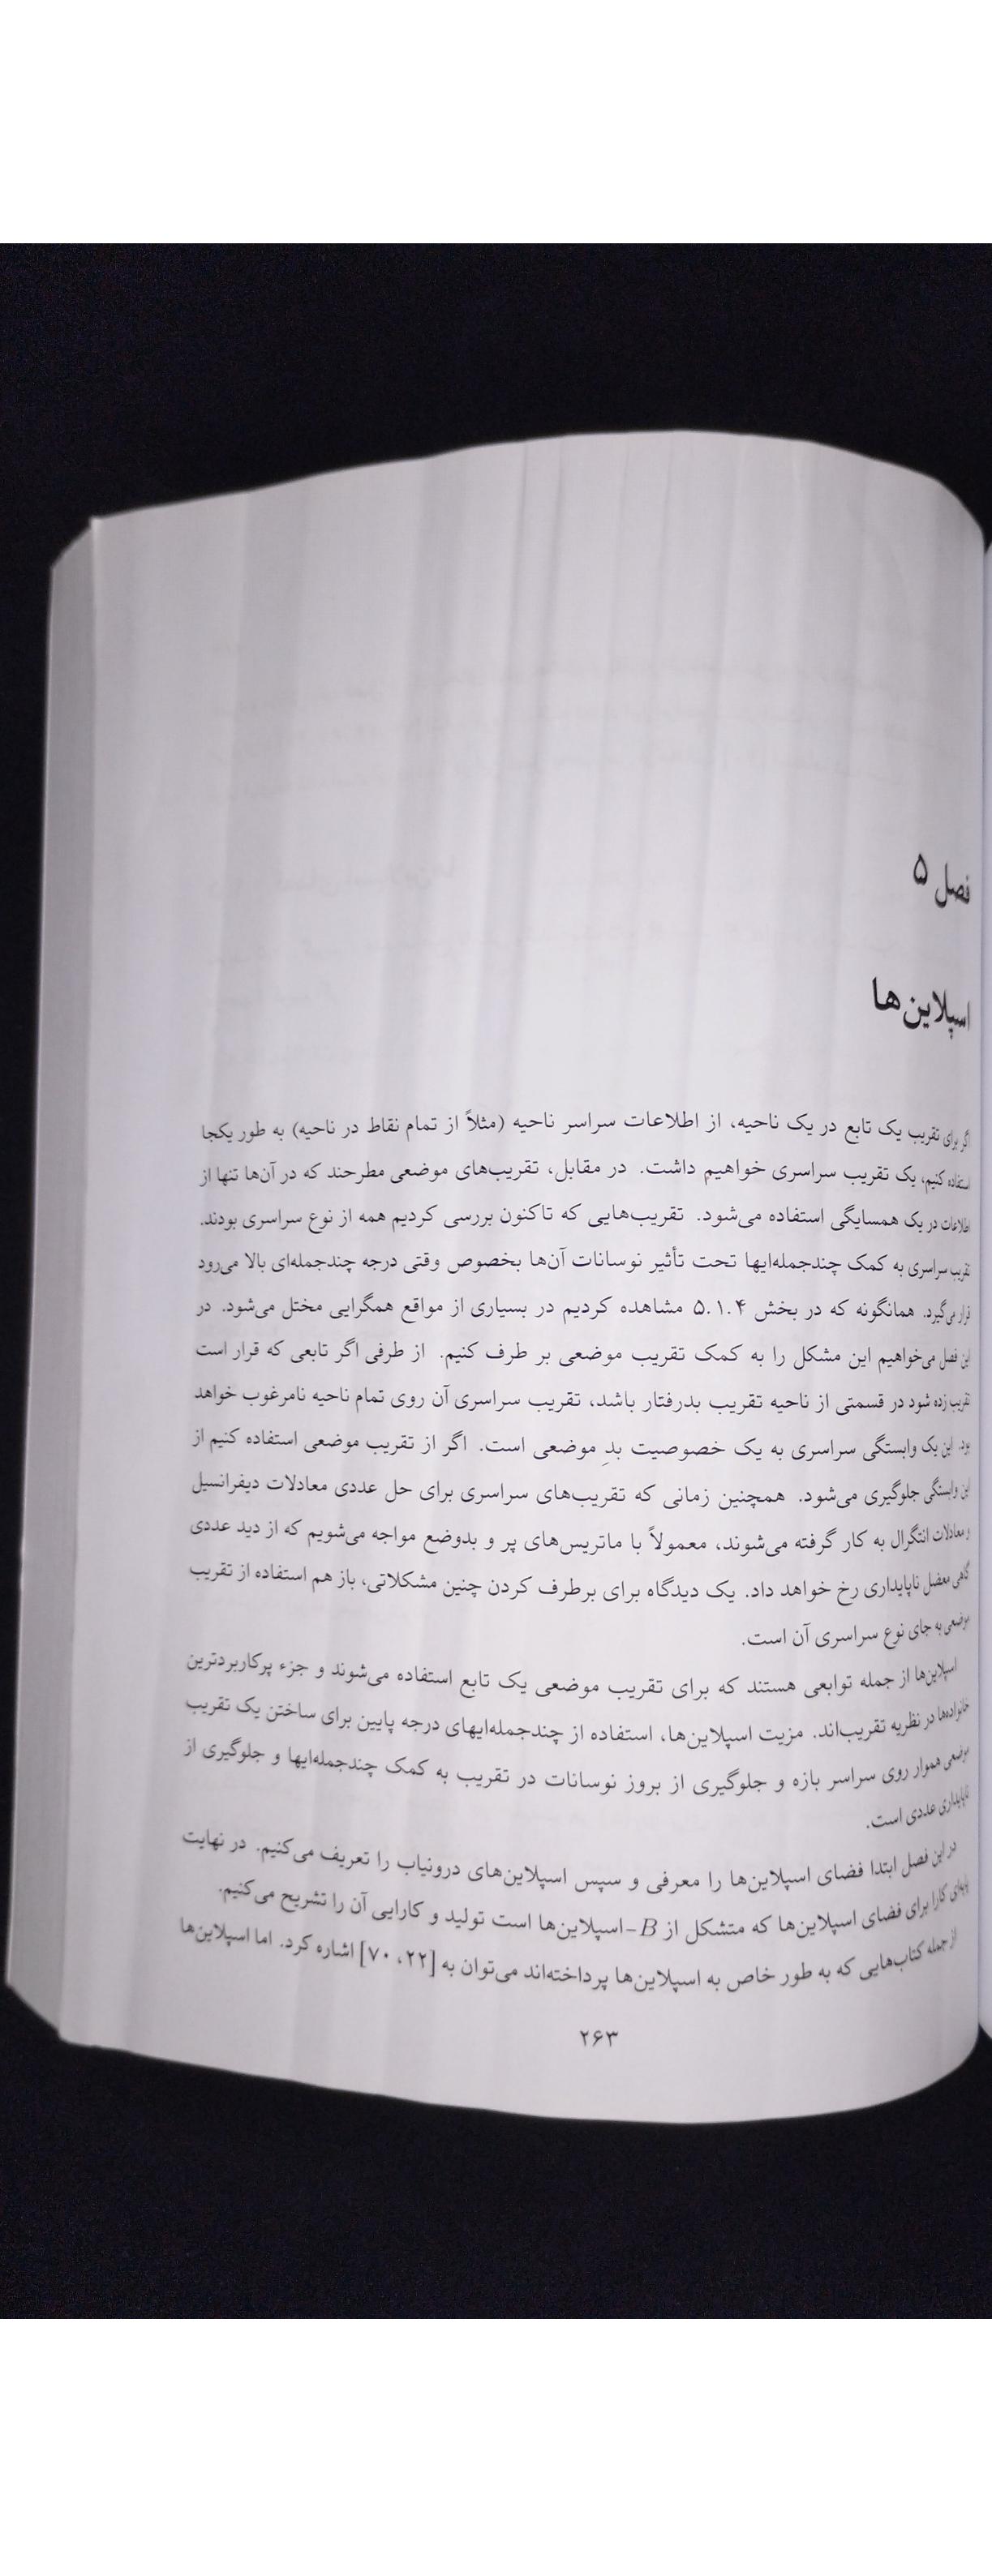 فصل ۵
اسپلاین‌ها
اگر برای تقریب یک تابع در یک ناحیه، از اطلاعات سراسر ناحیه (مثلاً از تمام نقاط در ناحیه) به طور یکجا
استفاده کنیم، یک تقریب سراسری خواهیم داشت. در مقابل، تقریب‌های موضعی مطرحند که در آن‌ها تنها از
اطلاعات در یک همسایگی استفاده می‌شود. تقریب‌هایی که تاکنون بررسی کردیم همه از نوع سراسری بودند.
تقریب سراسری به کمک چندجمله‌ایها تحت تأثیر نوسانات آن‌ها بخصوص وقتی درجه چندجمله‌ای بالا می‌رود
قرار می‌گیرد. همانگونه که در بخش ۵.۱.۴ مشاهده کردیم در بسیاری از مواقع همگرایی مختل می‌شود. در
این فصل می‌خواهیم این مشکل را به کمک تقریب موضعی بر طرف کنیم. از طرفی اگر تابعی که قرار است
تقریب زده شود در قسمتی از ناحیه تقریب بدرفتار باشد، تقریب سراسری آن روی تمام ناحیه نامرغوب خواهد
بود. این یک وابستگی سراسری به یک خصوصیت بدِ موضعی است. اگر از تقریب موضعی استفاده کنیم از
این وابستگی جلوگیری می‌شود. همچنین زمانی که تقریب‌های سراسری برای حل عددی معادلات دیفرانسیل
و معادلات انتگرال به کار گرفته می‌شوند، معمولاً با ماتریس‌های پر و بدوضع مواجه می‌شویم که از دید عددی
گاهی معضل ناپایداری رخ خواهد داد. یک دیدگاه برای برطرف کردن چنین مشکلاتی، باز هم استفاده از تقریب
موضعی به جای نوع سراسری آن است.
اسپلاین‌ها از جمله توابعی هستند که برای تقریب موضعی یک تابع استفاده می‌شوند و جزء پرکاربردترین
خانواده‌ها در نظریه تقریب‌اند. مزیت اسپلاین‌ها، استفاده از چندجمله‌ایهای درجه پایین برای ساختن یک تقریب
موضعی هموار روی سراسر بازه و جلوگیری از بروز نوسانات در تقریب به کمک چندجمله‌ایها و جلوگیری از
ناپایداری عددی است.
در این فصل ابتدا فضای اسپلاین‌ها را معرفی و سپس اسپلاین‌های درونیاب را تعریف می‌کنیم. در نهایت
پایه‌ای کارا برای فضای اسپلاین‌ها که متشکل از B-اسپلاین‌ها است تولید و کارایی آن را تشریح می‌کنیم.
از جمله کتاب‌هایی که به طور خاص به اسپلاین‌ها پرداخته‌اند می‌توان به [۲۲، ۷۰] اشاره کرد. اما اسپلاین‌ها
۲۶۳